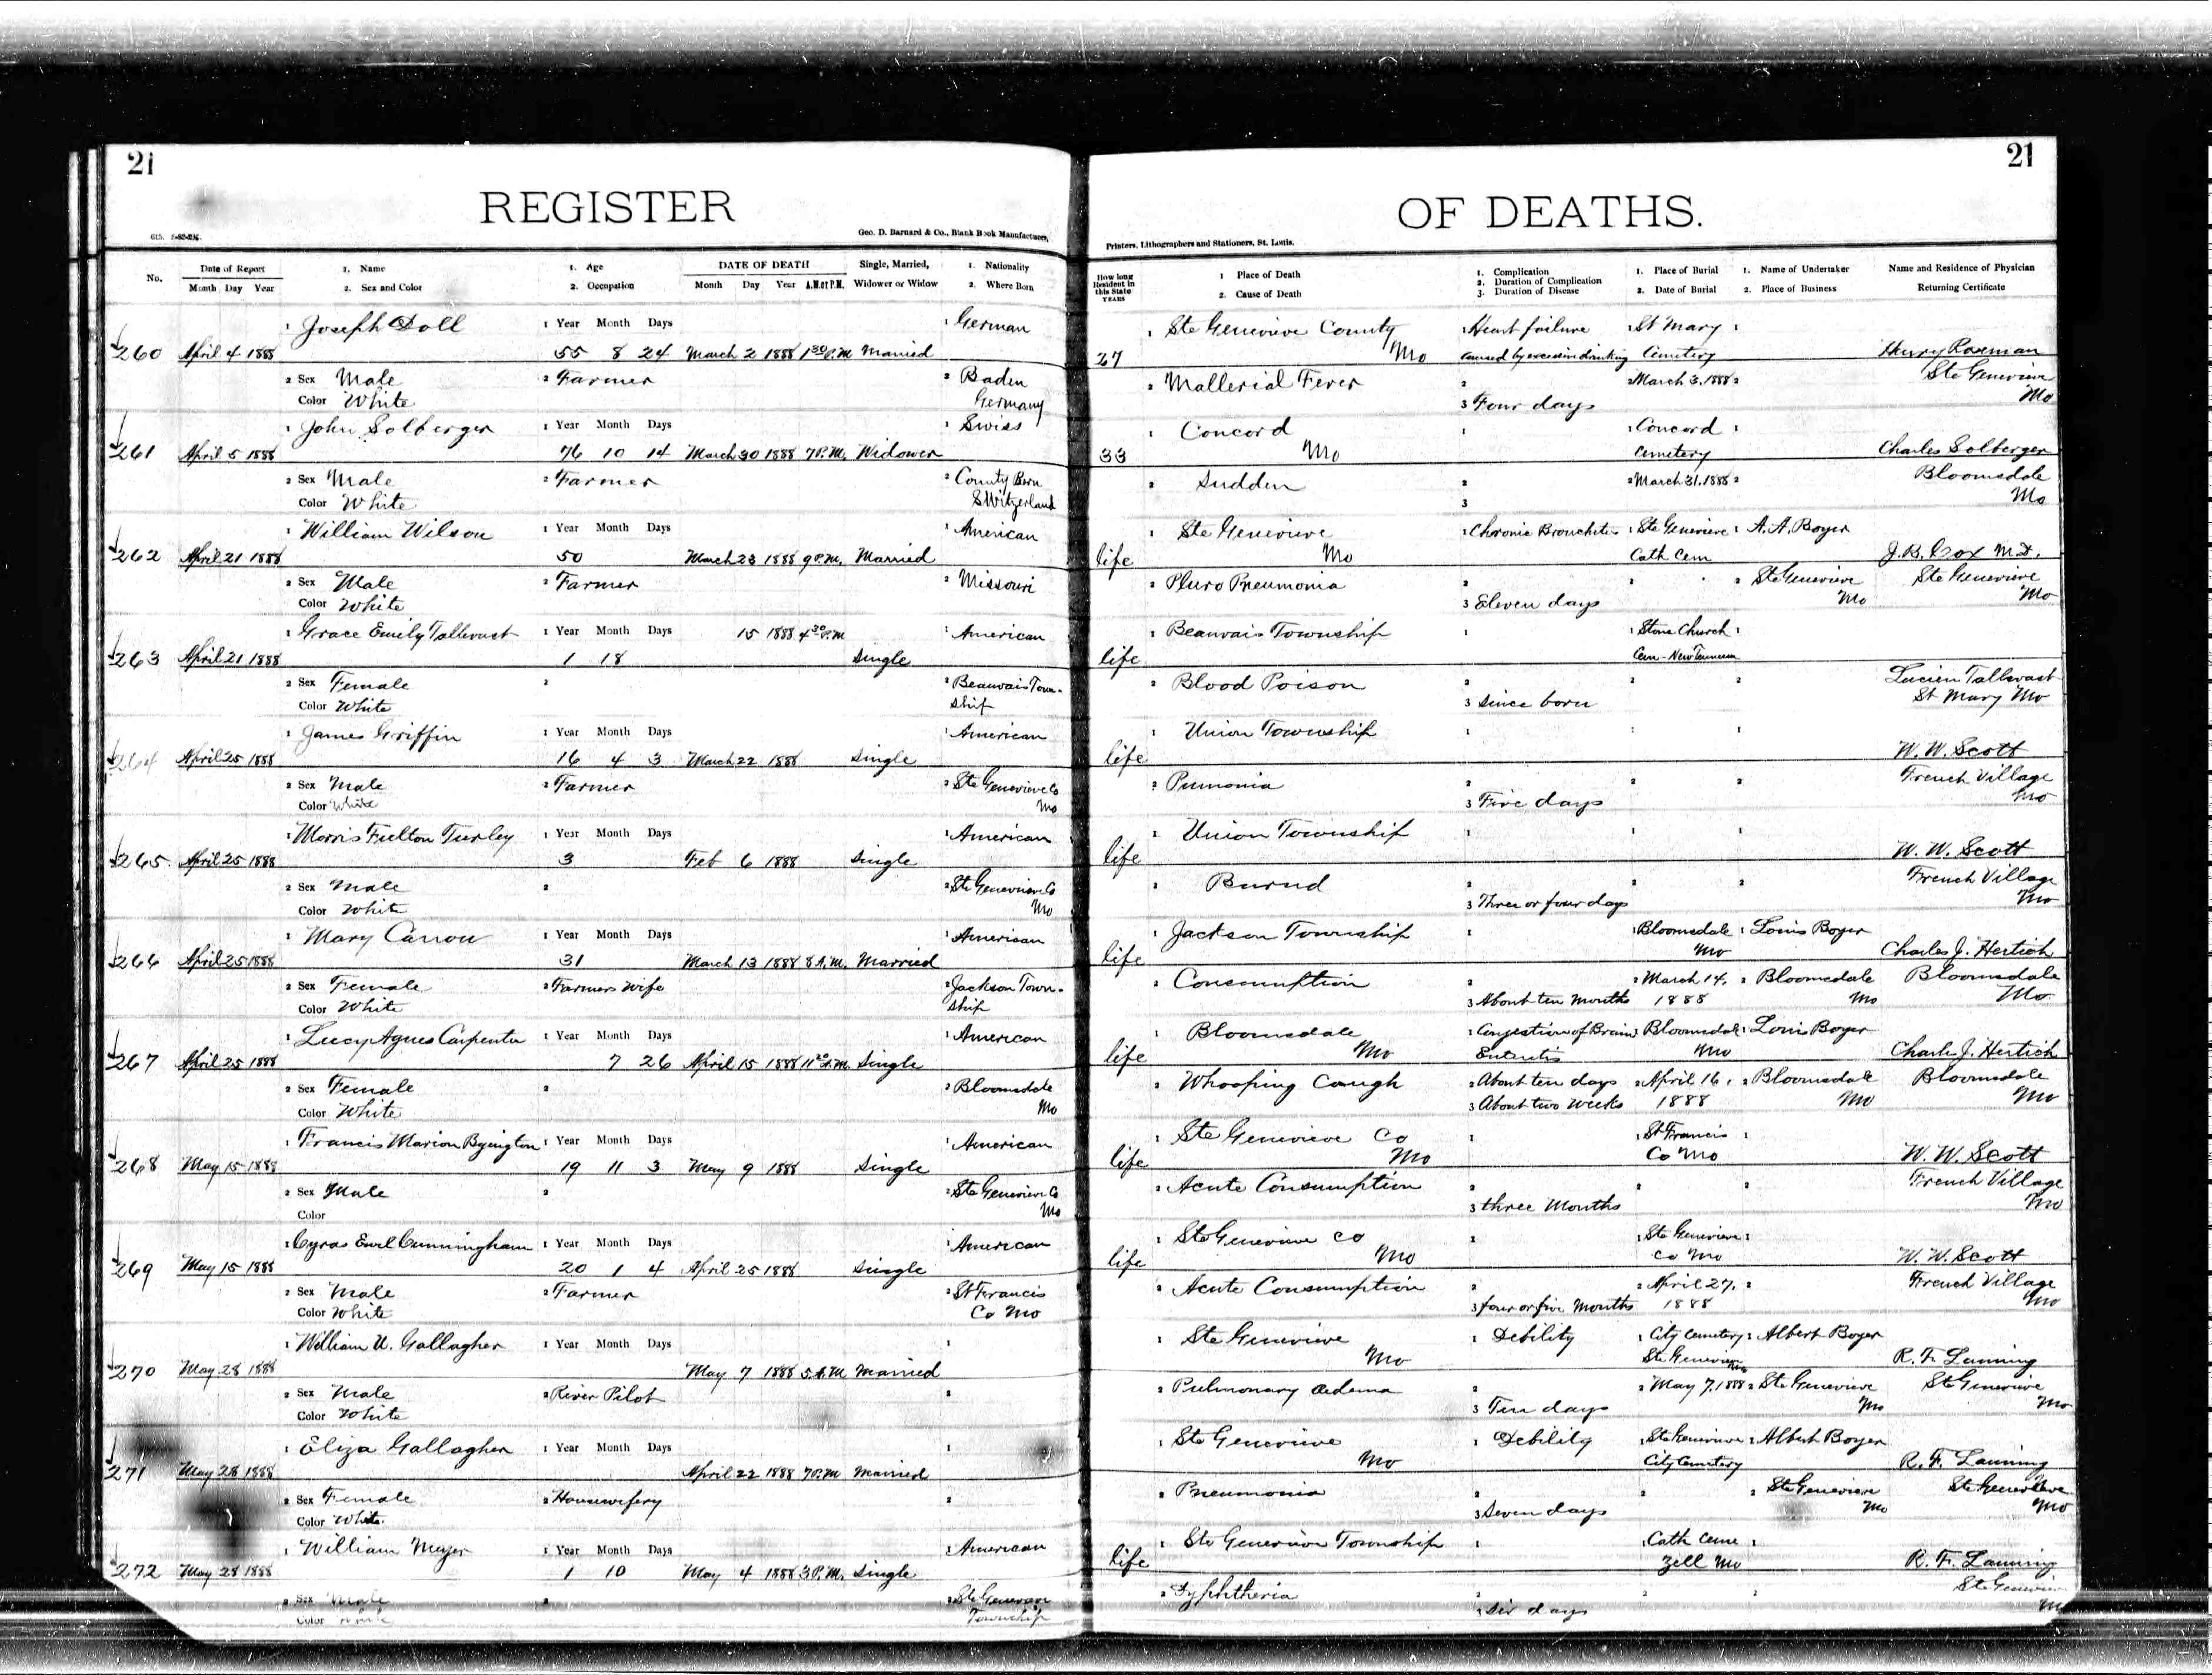 21
21
REGISTER
OF DEATHS.
Geo. D. Barnard & Co., Blank Book Manufacturers,
Printers, Lithographers and Stationers, St. Louis.
No.
Date of Report
Month Day Year
1. Name
2. Sex and Color
1. Age
2. Occupation
DATE OF DEATH
Month Day Year A.M. or P.M.
Single, Married,
Widower or Widow
1. Nationality
2. Where Born
How long
Resident in
this State
YEARS
1 Place of Death
2. Cause of Death
1. Complication
2. Duration of Complication
3. Duration of Disease
1. Place of Burial
2. Date of Burial
1. Name of Undertaker
2. Place of Business
Name and Residence of Physician
Returning Certificate
1 Joseph Doll 1 Year Month Days 1 German 1 Ste Genevieve County 1 Heart failure 1 St Mary 1
260 April 4 1888 55 8 24 March 2 1888 1 30 P.M Married 27 Mo caused by excessive drinking Cemetery Henry Roseman
2 Sex Male 2 Farmer 2 Baden 2 Mallerial Fever 2 2 March 3, 1888 2 Ste Genevieve
Color White Germany 3 Four days Mo
1 John Solberger 1 Year Month Days 1 Swiss 1 Concord 1 1 Concord 1
261 April 5 1888 76 10 14 March 30 1888 7 P.M. Widower 33 Mo Cemetery Charles Solberger
2 Sex Male 2 Farmer 2 County Bern 2 Sudden 2 2 March 31, 1888 2 Bloomsdale
Color White Switzerland 3 Mo
1 William Wilson 1 Year Month Days 1 American 1 Ste Genevieve 1 Choronic Bronchitis 1 Ste Genevieve 1 A. A. Boyer
262 April 21 1888 50 March 23 1888 9 P.M. Married life Mo Cath Cem J. B. Cox M.D.
2 Sex Male 2 Farmer 2 Missouri 2 Pluro Pneumonia 2 2 2 Ste Genevieve Ste Genevieve
Color White 3 Eleven days Mo Mo
1 Grace Emily Tallevast 1 Year Month Days 15 1888 4 30 P.M 1 American 1 Beauvais Township 1 1 Stone Church 1
263 April 21 1888 1 18 Single life Cem - New Tennessee
2 Sex Female 2 2 Beauvais Town- 2 Blood Poison 2 2 2 Lucien Tallevast
Color White ship 3 since born St Mary Mo
1 James Griffin 1 Year Month Days 1 American 1 Union Township 1 1 1
264 April 25 1888 16 4 3 March 22 1888 Single life W. W. Scott
2 Sex Male 2 Farmer 2 Ste Genevieve Co 2 Pumonia 2 2 2 French Village
Color White Mo 3 Five days Mo
1 Morris Fulton Turley 1 Year Month Days 1 American 1 Union Township 1 1 1
265 April 25 1888 3 Feb 6 1888 Single life W. W. Scott
2 Sex Male 2 2 Ste Genevieve Co 2 Burnd 2 2 2 French Village
Color White Mo 3 Three or four days Mo
1 Mary Carron 1 Year Month Days 1 American 1 Jackson Township 1 1 Bloomsdale 1 Louis Boyer
266 April 25 1888 31 March 13 1888 8 A.M. Married life Mo Charles J. Hertich
2 Sex Female 2 Farmers Wife 2 Jackson Town- 2 Consumption 2 2 March 14, 2 Bloomsdale Bloomsdale
Color White ship 3 About ten months 1888 Mo Mo
1 Lucy Agnes Carpenter 1 Year Month Days 1 American 1 Bloomsdale 1 Congestion of Brain Bloomsdale 1 Louis Boyer
267 April 25 1888 7 26 April 15 1888 11 A.M. Single life Mo Enteritis Mo Charles J. Hertich
2 Sex Female 2 2 Bloomsdale 2 Whooping Cough 2 About ten days 2 April 16, 2 Bloomsdale Bloomsdale
Color White Mo 3 About two weeks 1888 Mo Mo
1 Francis Marion Byington 1 Year Month Days 1 American 1 Ste Genevieve Co 1 1 St Francis 1
268 May 15 1888 19 11 3 May 9 1888 Single life Mo Co Mo W. W. Scott
2 Sex Male 2 2 Ste Genevieve Co 2 Acute Consumption 2 2 2 French Village
Color Mo 3 three Months Mo
1 Cyras Cunningham 1 Year Month Days 1 American 1 Ste Genevieve Co 1 1 Ste Genevieve 1
269 May 15 1888 20 1 4 April 25 1888 Single life Mo Co Mo W. W. Scott
2 Sex Male 2 Farmer 2 St Francis 2 Acute Consumption 2 2 April 27, 2 French Village
Color White Co Mo 3 four or five Months 1888 Mo
1 William U. Gallagher 1 Year Month Days 1 1 Ste Genevieve 1 Debility 1 City Cemetery 1 Albert Boyer
270 May 28 1888 May 7 1888 5 A.M Married Mo Ste Genevieve Mo R. F. Lanning
2 Sex Male 2 River Pilot 2 2 Pulmonary Oedema 2 2 May 7, 1888 2 Ste Genevieve Ste Genevieve
Color White 3 Ten days Mo Mo
1 Eliza Gallagher 1 Year Month Days 1 1 Ste Genevieve 1 Debility 1 Ste Genevieve 1 Albert Boyer
271 May 28 1888 April 22 1888 7 P.M Married Mo City Cemetery R. F. Lanning
2 Sex Female 2 Housewifery 2 2 Pneumonia 2 2 2 Ste Genevieve Ste Genevieve
Color White 3 Seven days Mo Mo
1 William Meyer 1 Year Month Days 1 American 1 Ste Genevieve Township 1 Cath Ceme 1
272 May 28 1888 1 10 May 4 1888 3 P.M. Single life Zell Mo R. F. Lanning
2 Sex Male 2 2 Ste Genevieve 2 Dyphtheria 2 2 2 Ste Genevieve
Color White Township 3 Six days Mo